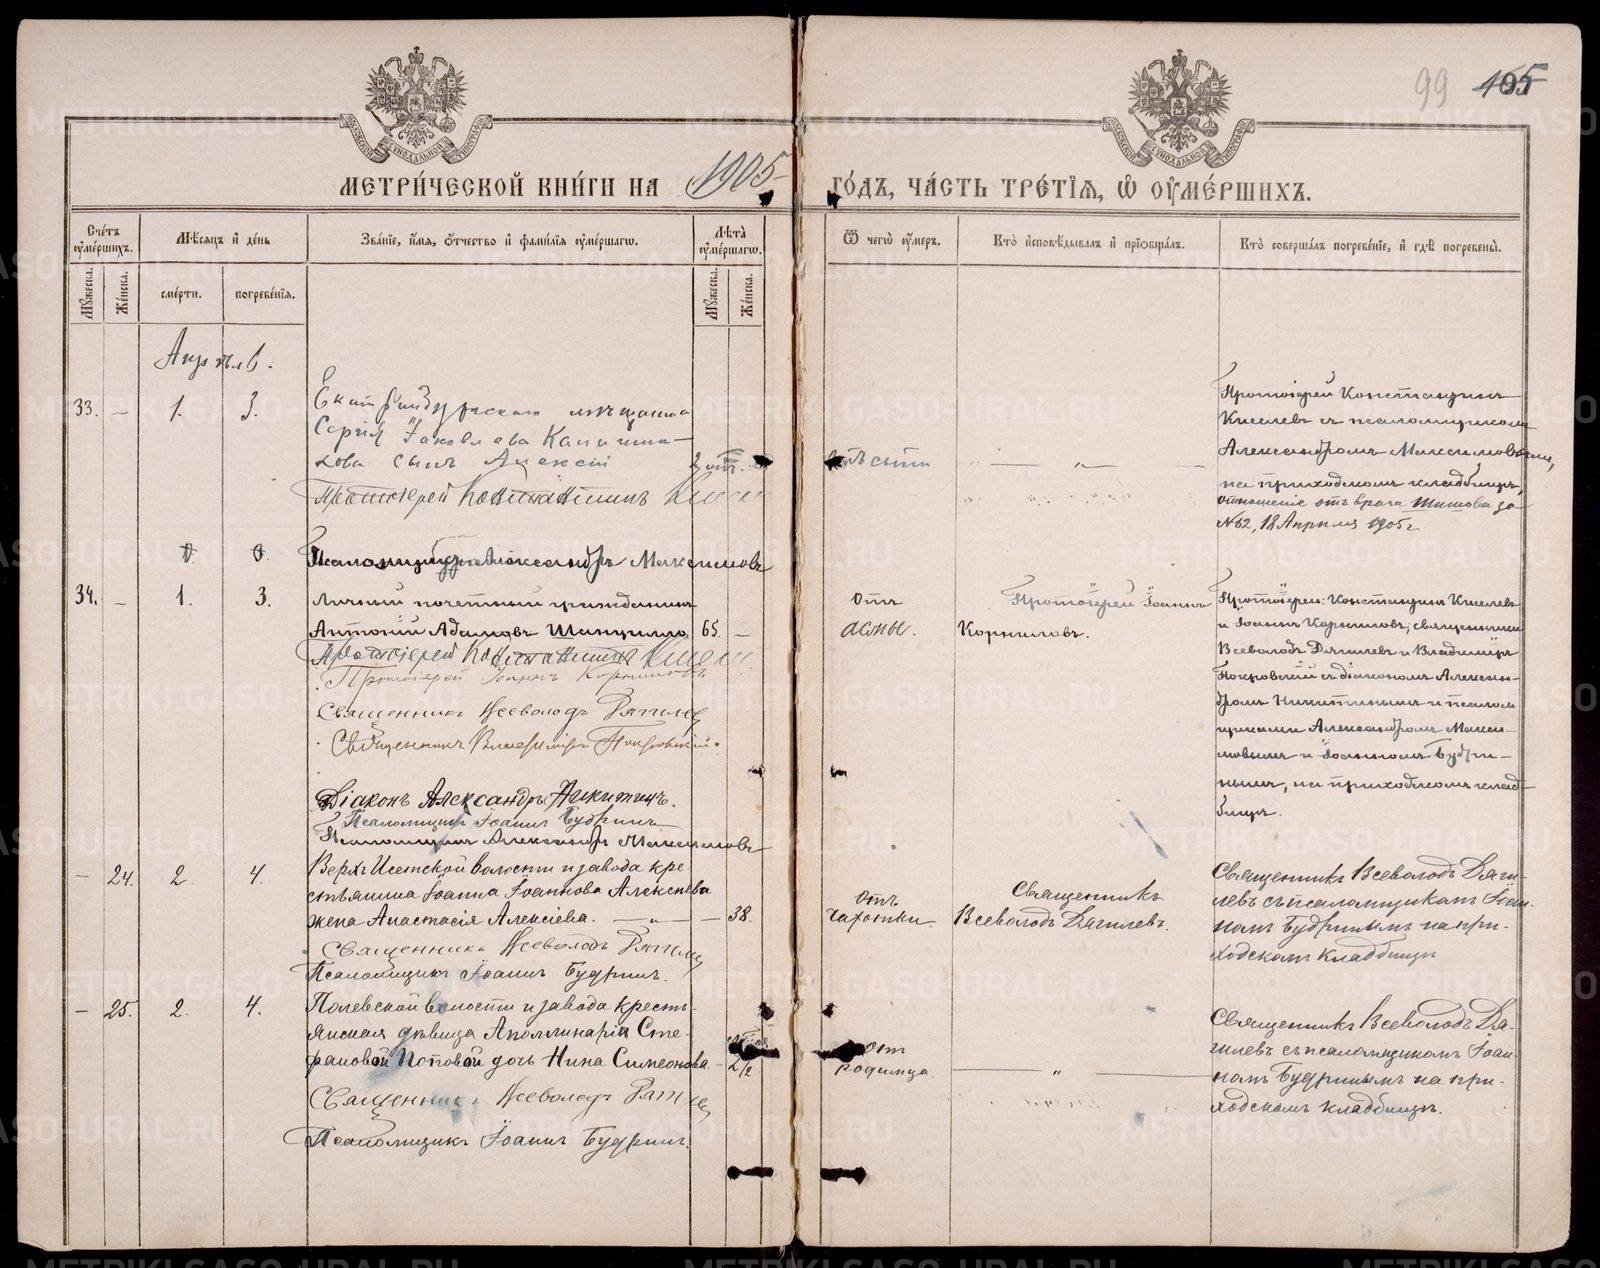 99 105
МЕТРИ́ЧЕСКОЙ КНИ́ГИ НА 1905
ГО́ДЪ, ЧА́СТЬ ТРЕ́ТІѦ, Ѡ҆ ОУ҆МЕ́РШИХЪ.
Счетъ оумершихъ.
Мѣсяцъ и день
Званіе, имя, отчество и фамилія оумершагѡ.
Лѣта оумершагѡ.
Мꙋжеска.
Женска.
смерти.
погребенія.
Мꙋжеска.
Женска.
Ѿ чегѡ оумеръ.
Кто исповѣдывалъ и пріобщалъ.
Кто совершалъ погребеніе, и гдѣ погребены.
Апрѣль.
33. – 1. 3.
Екатеринбургскаго мѣщанина
Сергія Іаковлева
сынъ Алексій
Протоіерей Константинъ
Псаломщикъ Александръ Максимовъ
Протоіерей Константинъ
Киселевъ съ псаломщикомъ
Александромъ Максимовымъ,
на приходскомъ кладбищѣ,
отношеніе отъ врача Шипова за
№62, 18 Апрѣля 1905 г.
34. – 1. 3.
Личный почетный гражданинъ
Антоній Адамовъ 65 –
Протоіерей Константинъ
Протоіерей Іоаннъ Корниловъ
Священникъ Всеволодъ Дягилевъ
Священникъ Владиміръ Покровскій.
Діаконъ Александръ Никитинъ.
Псаломщикъ Іоаннъ Будринъ
Псаломщикъ Александръ Максимовъ
Отъ
астмы.
Протоіерей Іоаннъ
Корниловъ.
Протоіереи: Константинъ Киселевъ
и Іоаннъ Корниловъ, священники
Всеволодъ Дягилевъ и Владиміръ
Покровскій съ діакономъ Алексан-
дромъ Никитинымъ и псалом-
щиками Александромъ Макси-
мовымъ и Іоанномъ Будри-
нымъ, на приходскомъ клад-
бищѣ.
– 24. 2. 4.
Верхъ Исетской волости и завода кре
стьянина Іоанна Іоаннова Алексѣева
жена Анастасія Алексіева. – 38.
Священникъ Всеволодъ Дягилевъ
Псаломщикъ Іоаннъ Будринъ.
Отъ
чахотки
Священникъ
Всеволодъ Дягилевъ.
Священникъ Всеволодъ Дяги-
левъ съ псаломщикомъ Іоан-
номъ Будринымъ на при-
ходскомъ кладбищѣ
– 25. 2. 4.
Полевской волости и завода кресть-
янская дѣвица Аполлинаріи Сте-
фановой Поповой дочь Нина Симеонова – 2/2
Священникъ Всеволодъ Дягилевъ
Псаломщикъ Іоаннъ Будринъ.
Отъ
родимца.
Священникъ Всеволодъ Дя-
гилевъ съ псаломщикомъ Іоан-
номъ Будринымъ на при-
ходскомъ кладбищѣ.
METRIKI.GASO-URAL.RU